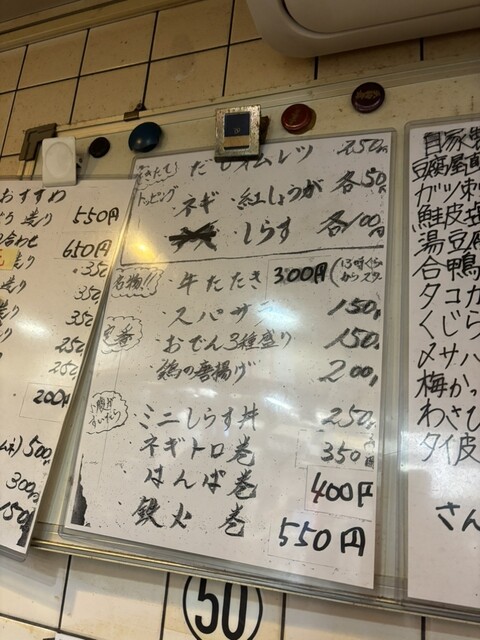 おすすめ
造り 550円
合わせ 650円
造り 350
造り 350
350
250
250
200円
500円
300
150
やきたて!
だし オムレツ 250円
トッピング
ネギ・紅しょうが 各50円
しらす 各100円
名物!!
牛たたき 300円 (13時くらいからスタ
・スパサラ 150
定番
・おでん3種盛り 150
・鶏の唐揚げ 200
お腹が すいたら
・ミニしらす丼 250
・ネギトロ巻 350円
・はんぱ巻 400円
・鉄火巻 550円
自家製
豆腐屋直
ガツ刺
鮭皮
湯豆腐
合鴨
タコか
くじら
〆サバ
梅かっ
わさび
タイ皮
さん
50